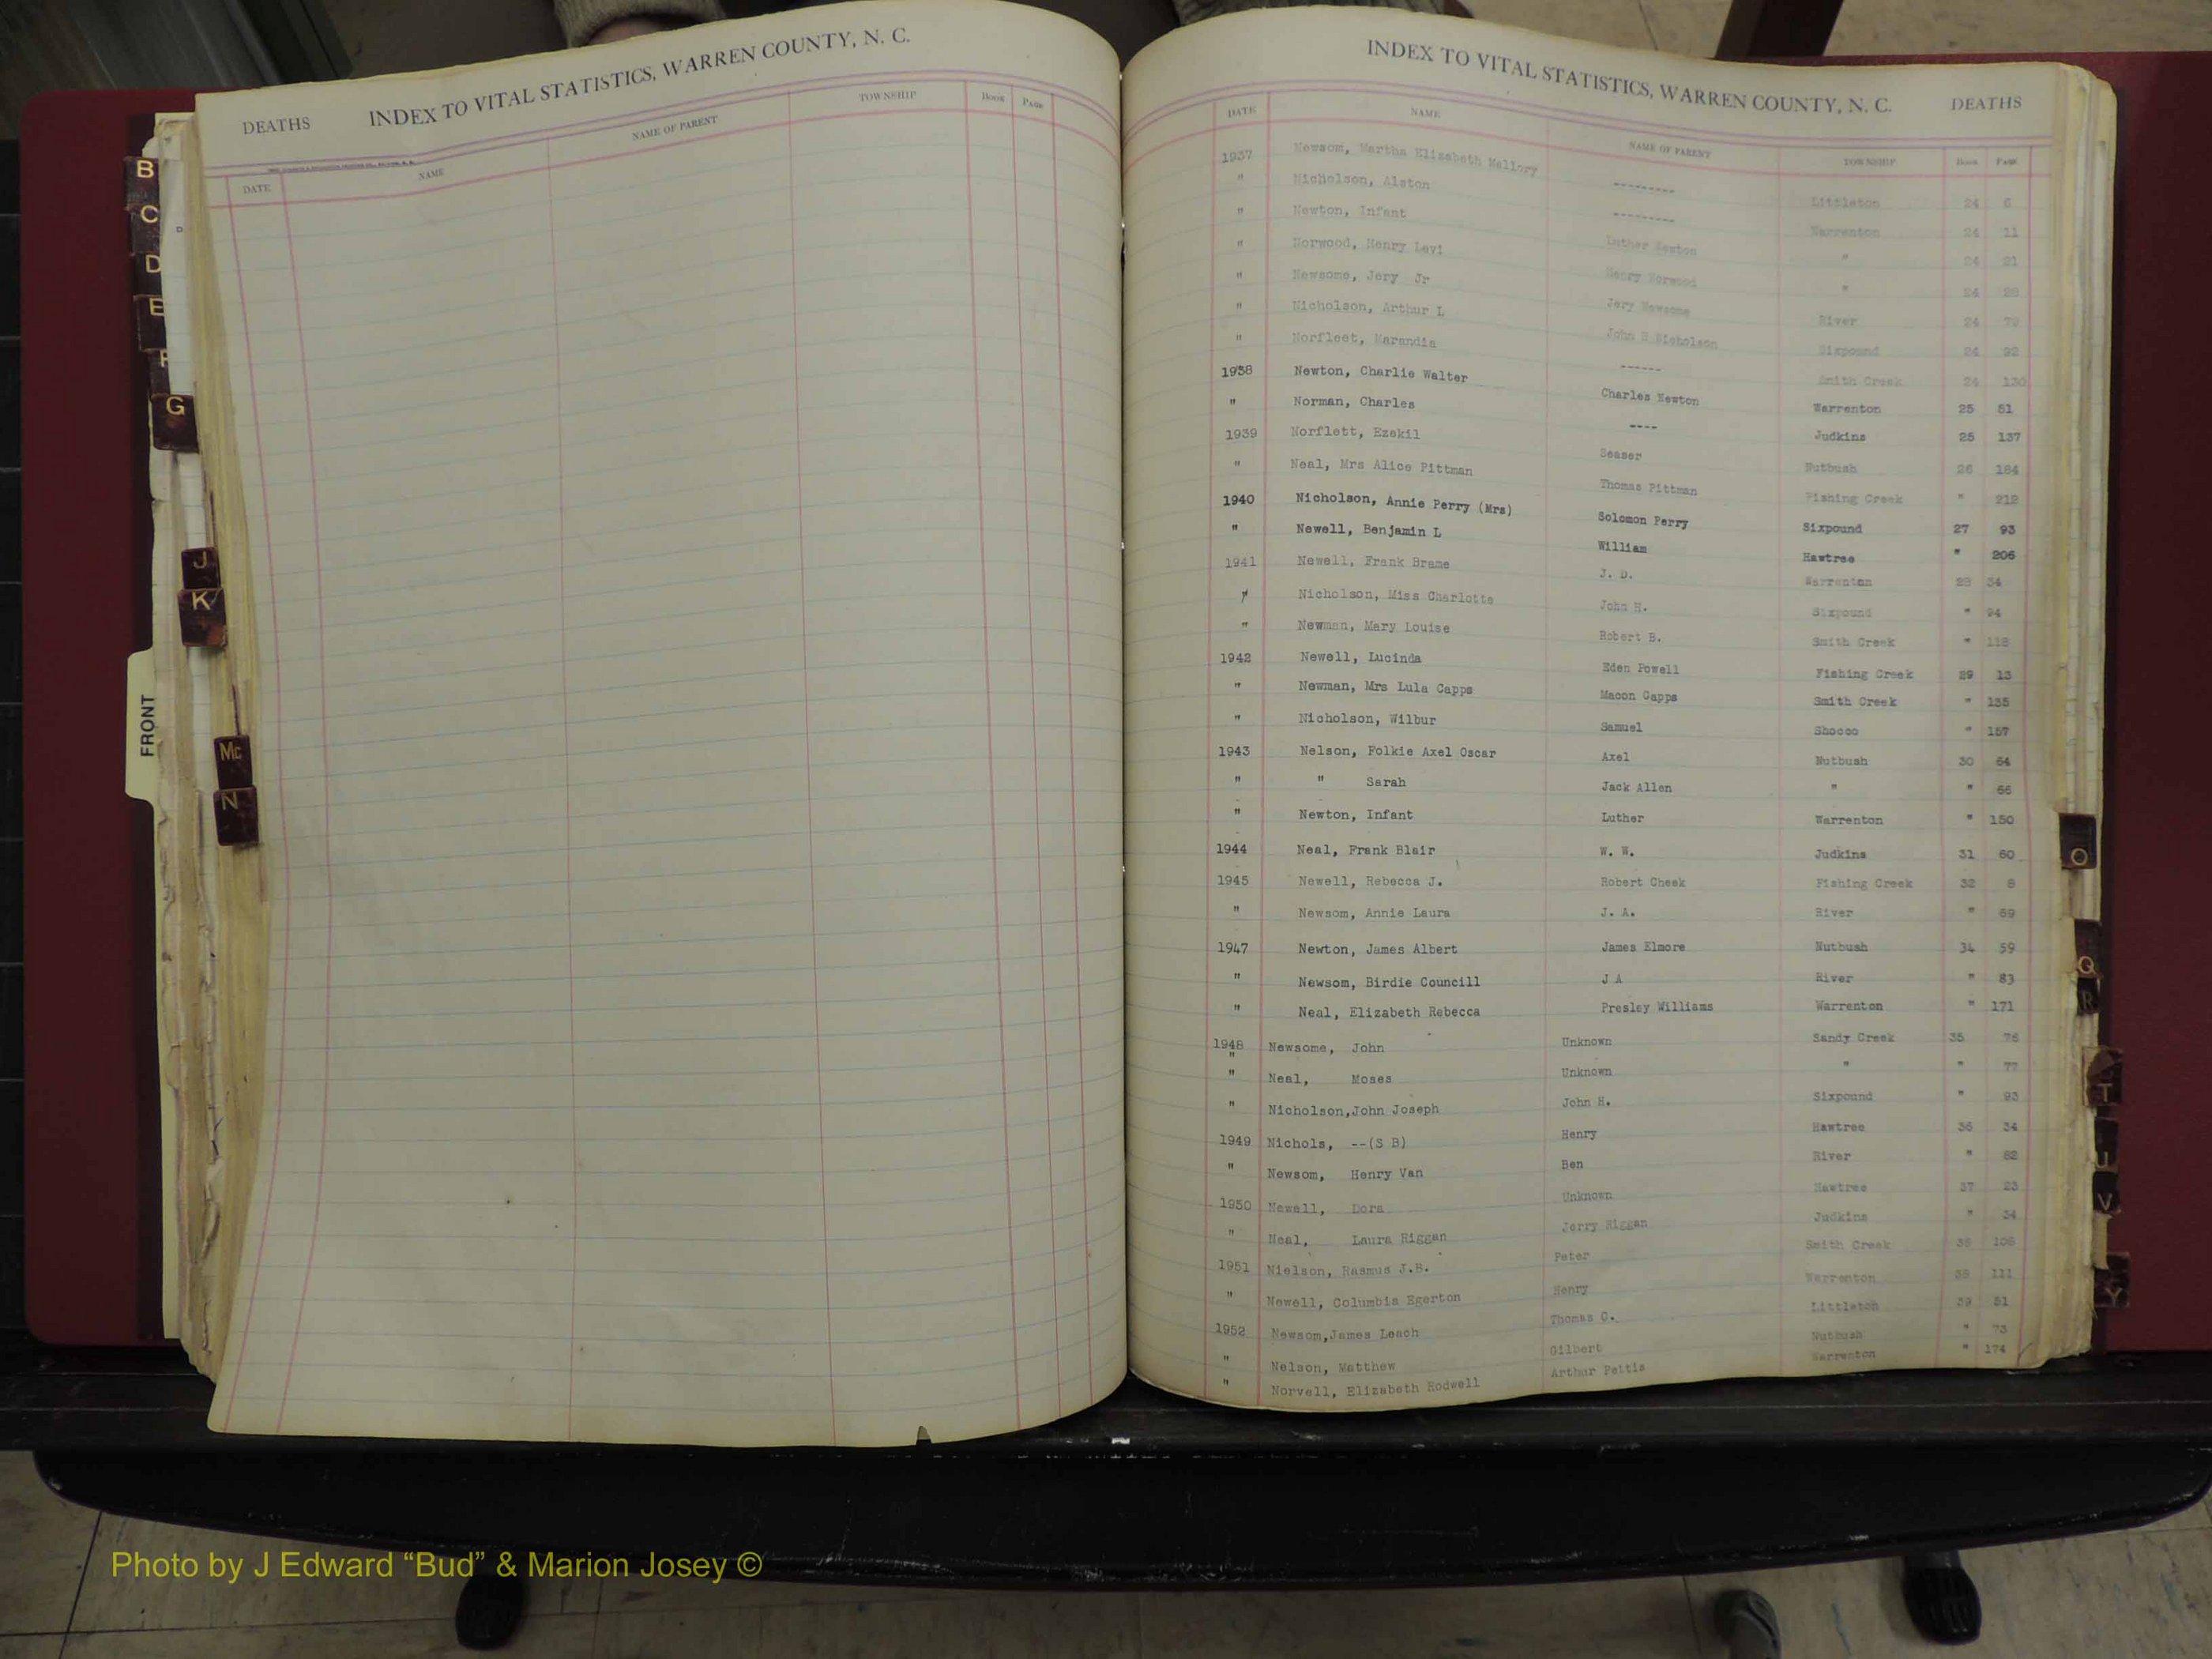 DEATHS INDEX TO VITAL STATISTICS, WARREN COUNTY, N. C.
DATE NAME NAME OF PARENT TOWNSHIP BOOK PAGE
INDEX TO VITAL STATISTICS, WARREN COUNTY, N. C. DEATHS
DATE NAME NAME OF PARENT TOWNSHIP Book Page
1937 Newsom, Martha Elizabeth Mallory --------- Littleton 24 6
" Nicholson, Alston --------- Warrenton 24 11
" Newton, Infant Luther Newton " 24 21
" Norwood, Henry Levi Henry Norwood " 24
" Newsome, Jery Jr Jery Newsome River 24 79
" Nicholson, Arthur L John Nicholson Sixpound 24 92
" Norfleet, Marandia ------ Smith Creek 24 130
1938 Newton, Charlie Walter Charles Newton Warrenton 25 51
" Norman, Charles ---- Judkins 25 137
1939 Norflett, Ezekil Seaser Nutbush 26 184
" Neal, Mrs Alice Pittman Thomas Pittman Fishing Creek " 212
1940 Nicholson, Annie Perry (Mrs) Solomon Perry Sixpound 27 93
" Newell, Benjamin L William Hawtree " 206
1941 Newell, Frank Brame J. D. Warrenton 28 34
" Nicholson, Miss Charlotte John H. Sixpound " 94
" Newman, Mary Louise Robert B. Smith Creek " 118
1942 Newell, Lucinda Eden Powell Fishing Creek 29 13
" Newman, Mrs Lula Capps Macon Capps Smith Creek " 135
" Nicholson, Wilbur Samuel Shocco " 157
1943 Nelson, Folkie Axel Oscar Axel Nutbush 30 64
" " Sarah Jack Allen " " 66
" Newton, Infant Luther Warrenton " 150
1944 Neal, Frank Blair W. W. Judkins 31 60
1945 Newell, Rebecca J. Robert Cheek Fishing Creek 32 8
" Newsom, Annie Laura J. A. River " 69
1947 Newton, James Albert James Elmore Nutbush 34 59
" Newsom, Birdie Councill J A River " 83
" Neal, Elizabeth Rebecca Presley Williams Warrenton " 171
1948 Newsome, John Unknown Sandy Creek 35 76
" Neal, Moses Unknown " " 77
" Nicholson, John Joseph John H. Sixpound " 93
1949 Nichols, --(S B) Henry Hawtree 36 34
" Newsom, Henry Van Ben River " 62
1950 Newell, Dora Unknown Hawtree 37 23
" Neal, Laura Riggan Jerry Riggan Judkins " 34
1951 Nielson, Rasmus J.B. Peter Smith Creek 38 108
" Newell, Columbia Egerton Henry Warrenton 38 111
1952 Newsom, James Leach Thomas C. Littleton 39 51
" Nelson, Matthew Gilbert Nutbush " 73
" Norvell, Elizabeth Rodwell Arthur Pettis Warrenton " 174
B
C
D
E
F
G
J
K
FRONT
Mc
N
O
Q
R
T
U
V
Y
Photo by J Edward “Bud” & Marion Josey ©